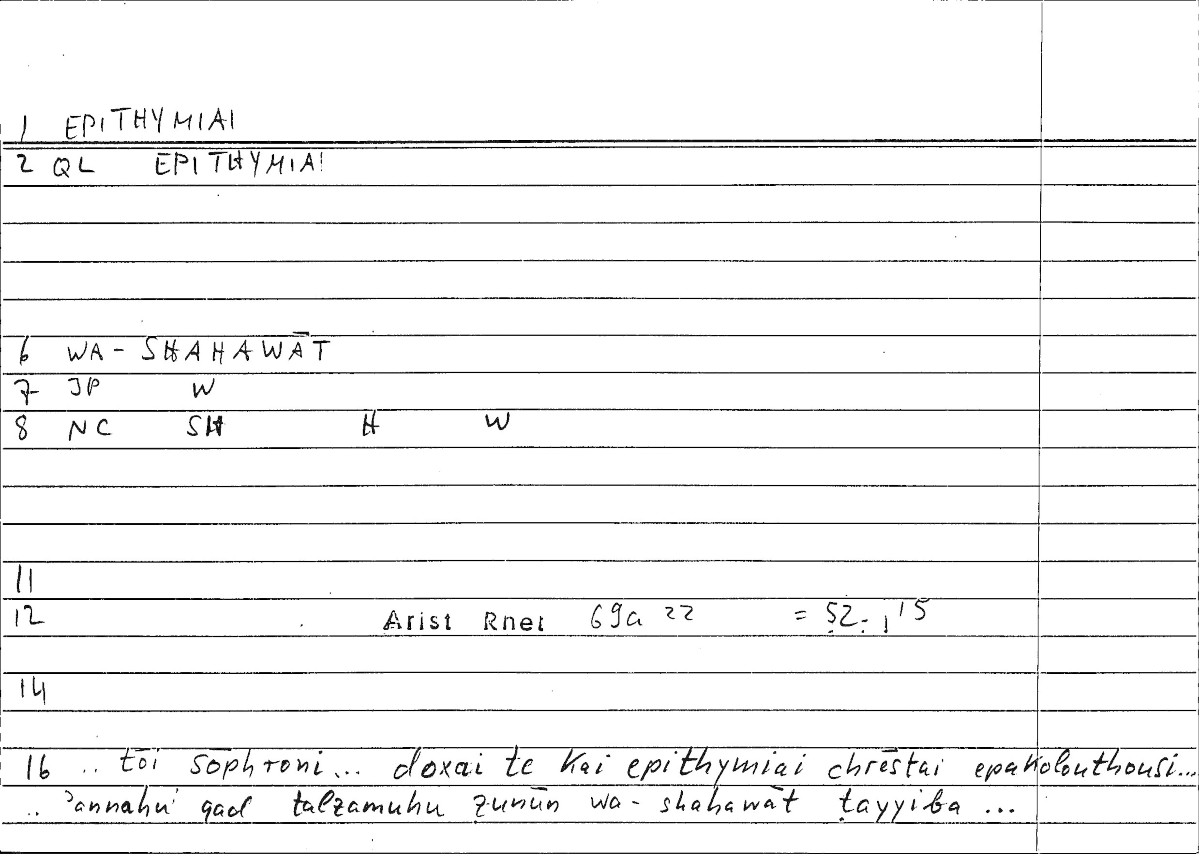 1 EPITHYMIAI
2 QL EPITHYMIAI
6 WA-SHAHAWĀT
7 JP W
8 NC SH H W
11
12 Arist Rhet 69a 22 = 52; 15
14
16 .. tōi sōphroni... doxai te kai epithymiai chrēstai epakolouthousi...
.. 'annahu qad talzamuhu ẓunūn wa-shahawāt ṭayyiba ...